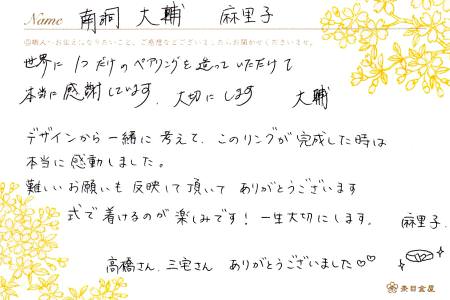 Name 南桐 大輔 麻里子
◎職人へお伝えになりたいこと、ご感想などございましたらお聞かせくださいませ。
世界に1つだけのペアリングを造っていただけて
本当に感謝しています。大切にします 大輔
デザインから一緒に考えて、このリングが完成した時は
本当に感動しました。
難しいお願いも反映して頂いて ありがとうございます
式で着けるのが楽しみです!一生大切にします。 麻里子.
高橋さん、三宅さん ありがとうございました♡♡
杢目金屋